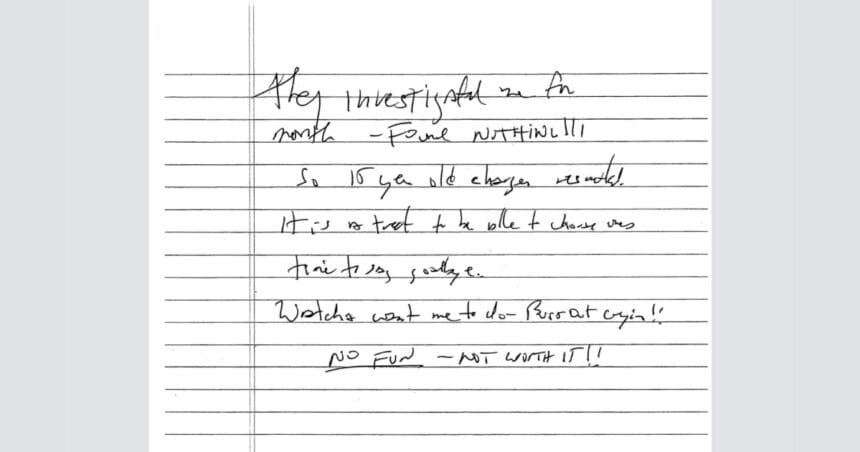 they investigated me for
month — Found NOTHING!!!
So 15 year old charges resulted.
It is a treat to be able to choose
time to say goodbye.
Watcha want me to do — Burst out cryin!!
NO FUN — NOT WORTH IT!!